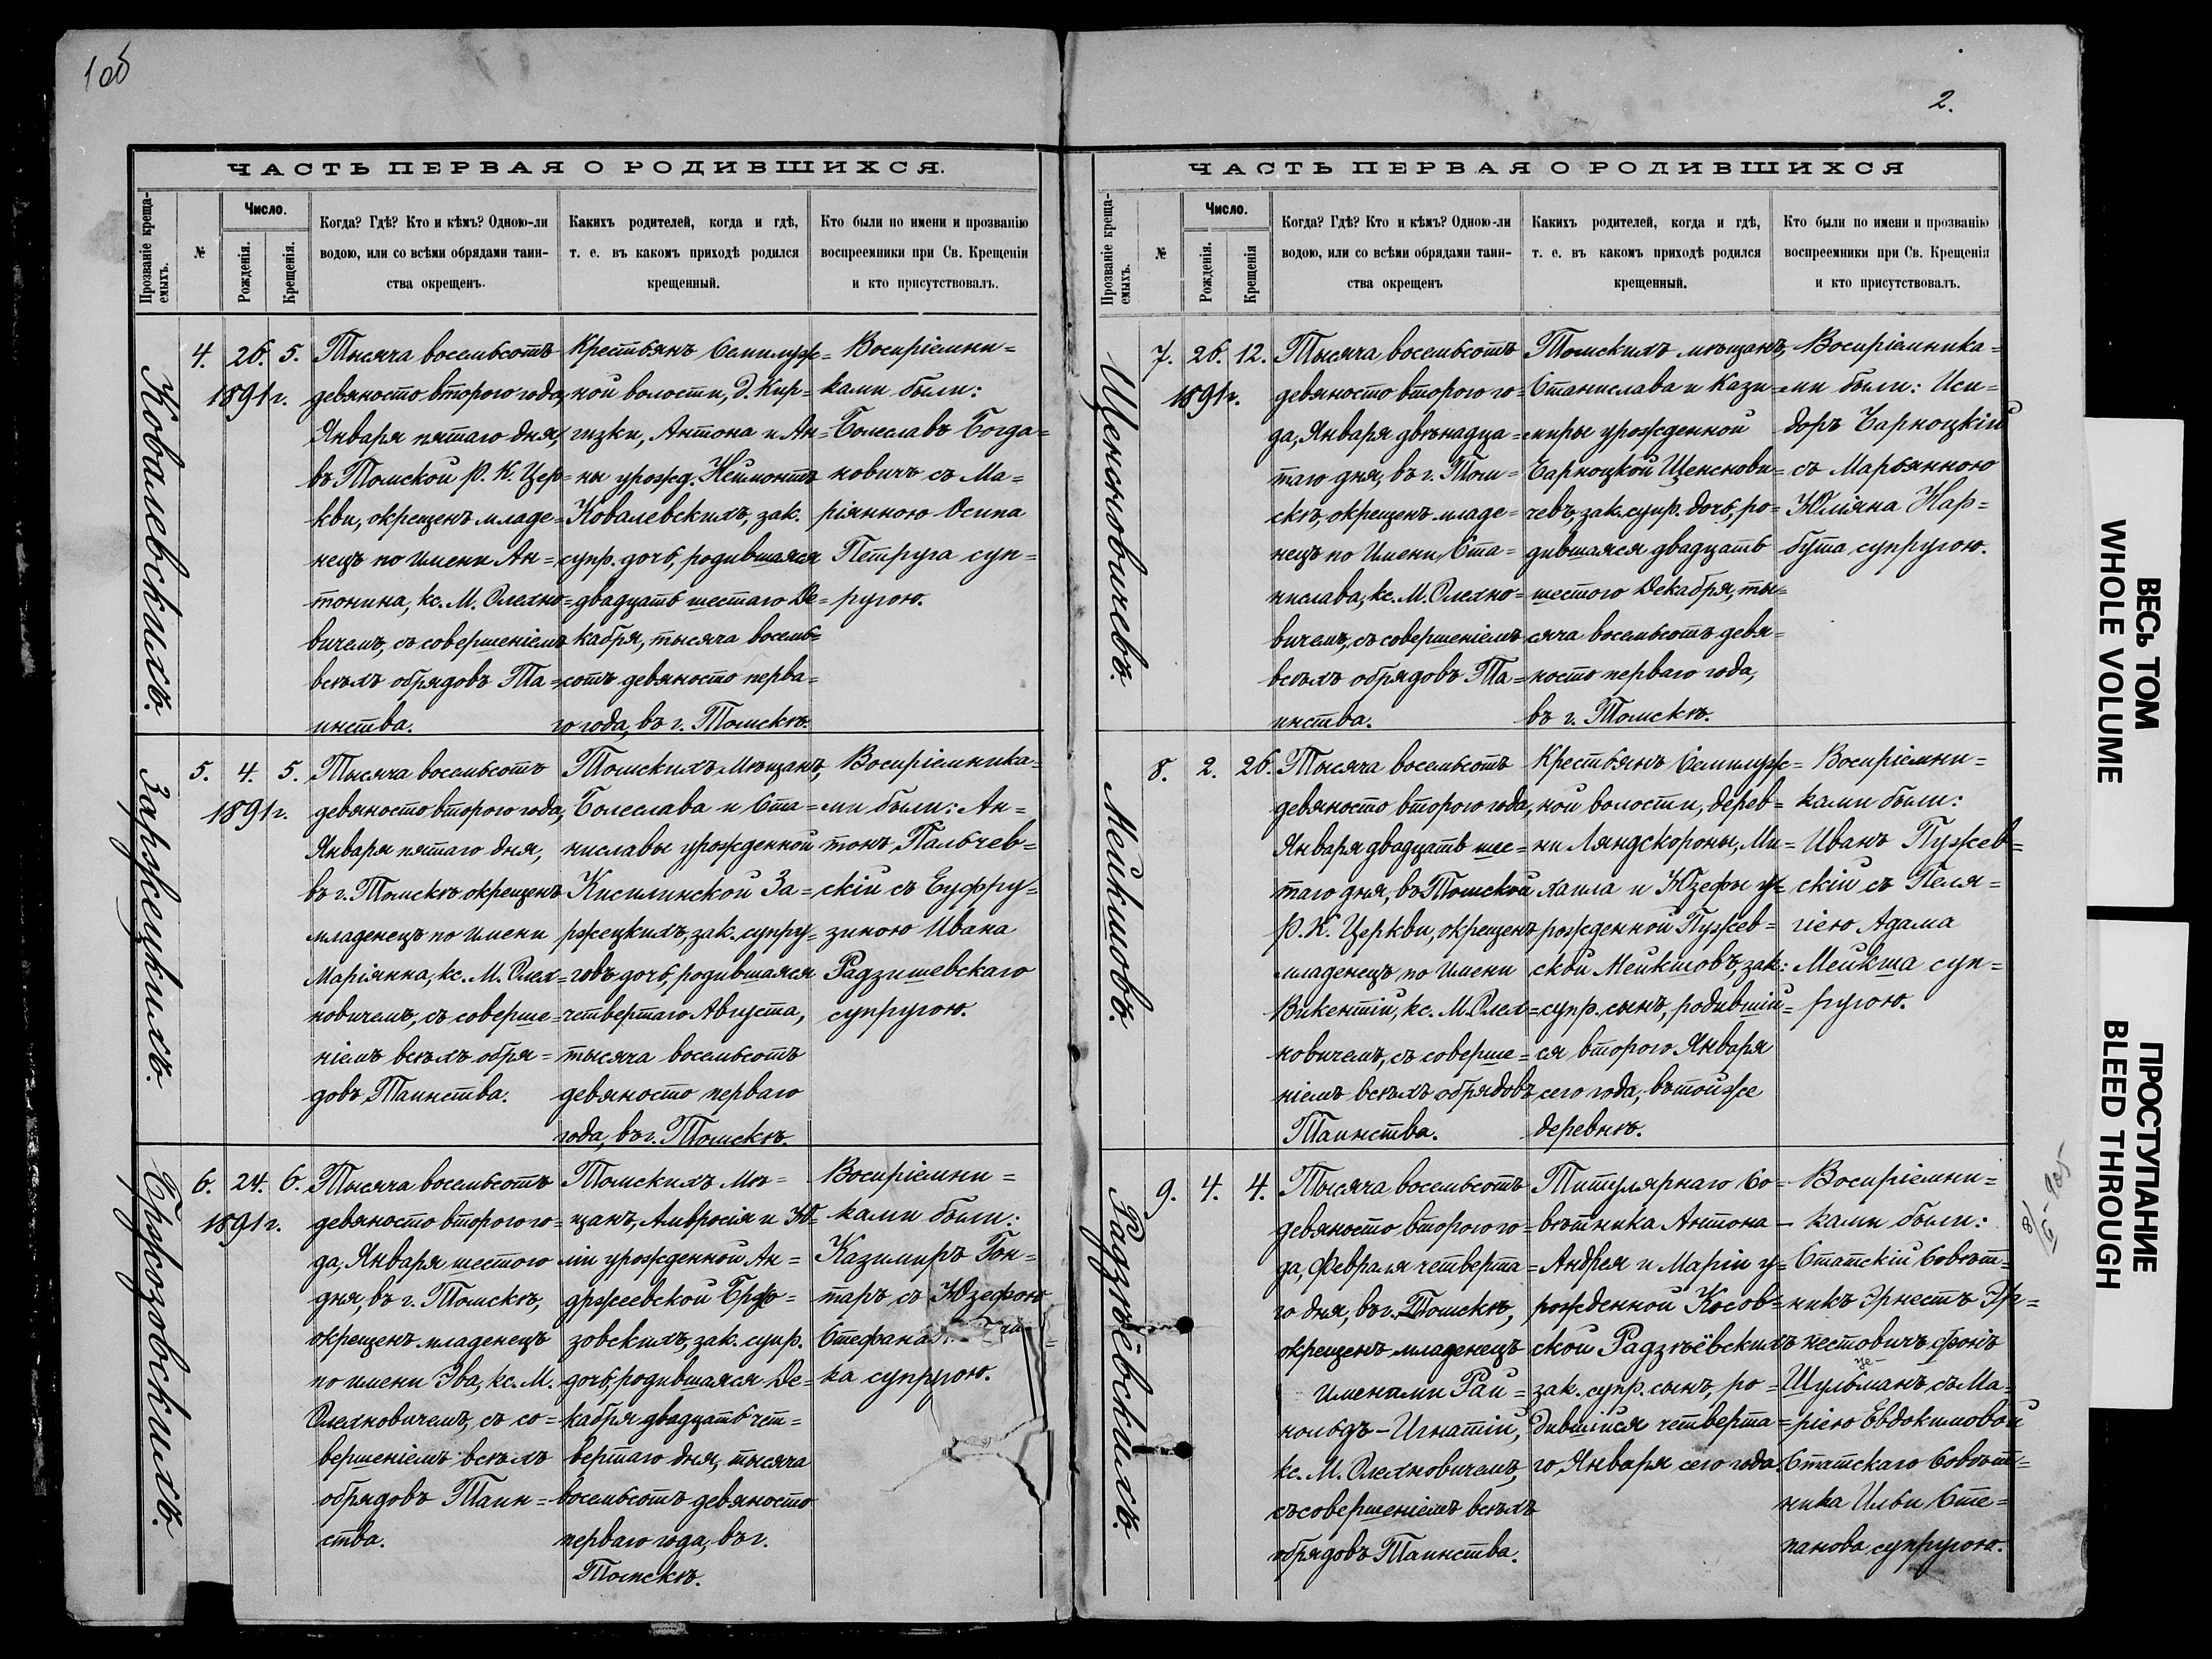 1об
ЧАСТЬ ПЕРВАЯ О РОДИВШИХСЯ.
Прозваніе креща-
емыхъ.
№
Число.
Рожденія.
Крещенія.
Когда? Гдѣ? Кто и кѣмъ? Одною-ли
водою, или со всѣми обрядами таин-
ства окрещенъ.
Какихъ родителей, когда и гдѣ,
т. е. въ какомъ приходѣ родился
крещенный.
Кто были по имени и прозванію
воспреемники при Св. Крещеніи
и кто присутствовалъ.
Ковалевскихъ.
4. 26. 5.
1891 г.
Тысяча восемьсотъ
девяносто второго года,
Января пятаго дня,
въ Томской Р. К. Цер=
кви, окрещенъ младе=
нецъ по имени Ан=
тонина, кс. М. Олехно=
вичемъ, съ совершеніемъ
всѣхъ обрядовъ Та=
инства.
Крестьянъ Семилуж=
ной волости, д. Кир=
гизки, Антона и Ан=
ны урожд. Неймонтъ
Ковалевскихъ, зак.
супр. дочь, родившаяся
двадцать шестаго Де=
кабря, тысяча восемь=
сотъ девяносто перва=
го года, въ г. Томскѣ.
Воспріемни=
ками были:
Болеславъ Богда=
новичъ съ Ма=
ріянною Осипа
Петруга суп=
ругою.
Заржецкихъ.
5. 4. 5.
1891 г.
Тысяча восемьсотъ
девяносто второго года,
Января пятаго дня,
въ г. Томскѣ окрещенъ
младенецъ по имени
Маріянна, кс. М. Олех=
новичемъ, съ соверше=
ніемъ всѣхъ обря=
довъ Таинства.
Томскихъ мѣщанъ,
Болеслава и Ста=
ниславы урожденной
Кисилинской За=
ржецкихъ, зак. супру=
говъ дочь, родившаяся
четвертаго Августа,
тысяча восемьсотъ
девяносто перваго
года, въ г. Томскѣ.
Воспріемника=
ми были: Ан=
тонъ Пальчев=
скій съ Еуфру=
зиною Ивана
Радзишевскаго
супругою.
Бржозовскихъ.
6. 24. 6.
1891 г.
Тысяча восемьсотъ
девяносто второго го=
да, Января шестого
дня, въ г. Томскѣ,
окрещенъ младенецъ
по имени Эва, кс. М.
Олехновичемъ, съ со=
вершеніемъ всѣхъ
обрядовъ Таин=
ства.
Томскихъ мѣ=
щанъ, Амвросія и
ліи урожденной Ан=
држеевской Бржо=
зовскихъ, зак. супр.
дочь, родившаяся Де=
кабря двадцать чет=
вертаго дня, тысяча
восемьсотъ девяносто
перваго года, въ г.
Томскѣ.
Воспріемни=
ками были:
Казимиръ Гон=
таръ съ Юзефою
Стефана
ка супругою.
2.
ЧАСТЬ ПЕРВАЯ О РОДИВШИХСЯ
Прозваніе креща-
емыхъ.
№
Число.
Рожденія.
Крещенія
Когда? Гдѣ? Кто и кѣмъ? Одною-ли
водою, или со всѣми обрядами таин-
ства окрещенъ
Какихъ родителей, когда и гдѣ,
т. е. въ какомъ приходѣ родился
крещенный.
Кто были по имени и прозванію
воспреемники при Св. Крещенія
и кто присутствовалъ.
Щенсновичевъ.
7. 26. 12.
1891 г.
Тысяча восемьсотъ
девяносто второго го=
да, Января двѣнадца=
таго дня, въ г. Том=
скѣ, окрещенъ младе=
нецъ по имени Ста=
нислава, кс. М. Олехно=
вичемъ, съ совершеніемъ
всѣхъ обрядовъ Та=
инства.
Томскихъ мѣщанъ,
Станислава и Кази=
миры урожденной
Чарноцкой Щенснови=
чевъ, зак. супр. дочь, ро=
дившаяся двадцать
шестого Декабря, ты=
сяча восемьсотъ девя=
носто перваго года,
въ г. Томскѣ.
Воспріемника=
ми были: Иси=
доръ Чарноцкій
съ Марьянною
Юліяна Нар=
бута супругою.
Мейкшовъ.
8. 2. 26.
Тысяча восемьсотъ
девяносто второго года,
Января двадцать шес=
таго дня, въ Томской
Р. К. Церкви, окрещенъ
младенецъ по имени
Викентій, кс. М. Олех=
новичемъ, съ соверше=
ніемъ всѣхъ обрядовъ
Таинства.
Крестьянъ Семилуж=
ной волости, дерев=
ни Ляндскороны, Ми=
хаила и Юзефы у=
рожденной Пужев=
ской Мейкшовъ, зак.
супр. сынъ, родившій=
ся второго Января
сего года, въ той же
деревнѣ.
Воспріемни=
ками были:
Иванъ Пужев=
скій съ Пеля=
гіею Адама
Мейкша суп=
ругою.
Радзѣёвскихъ.
9. 4. 4.
Тысяча восемьсотъ
девяносто второго го=
да, Февраля четверта=
го дня, въ г. Томскѣ,
окрещенъ младенецъ
именами Рай=
нольдъ-Игнатій,
кс. М. Олехновичемъ,
съ совершеніемъ всѣхъ
обрядовъ Таинства.
Титулярнаго Со=
вѣтника Антона -
Андрея и Маріи у=
рожденной Косов=
ской Радзѣёвскихъ
зак. супр. сынъ, ро=
дившійся четверта=
го Января сего года.
Воспріемни=
ками были:
Статскій Совѣт=
никъ Эрнестъ Эр=
нестовичъ фонъ
це-
Шульманъ съ Ма=
ріею Евдокимовой
Статскаго Совѣт=
ника Ильи Сте=
панова супругою.
ВЕСЬ ТОМ
WHOLE VOLUME
ПРОСТУПАНИЕ
BLEED THROUGH